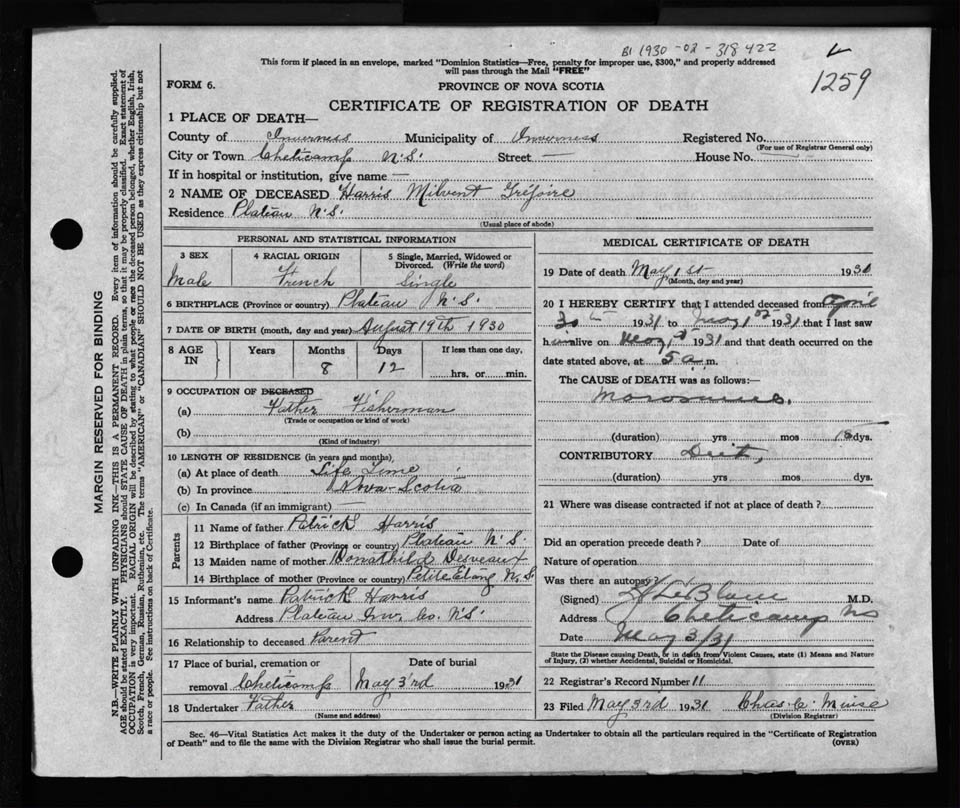 B1 1930-02-318422
1259
This form if placed in an envelope, marked "Dominion Statistics—Free, penalty for improper use, $300," and properly addressed
will pass through the Mail "FREE"
FORM 6.
PROVINCE OF NOVA SCOTIA
CERTIFICATE OF REGISTRATION OF DEATH
1 PLACE OF DEATH—
County of Inverness Municipality of Inverness Registered No.
(For use of Registrar General only)
City or Town Cheticamp N.S. Street — House No. —
If in hospital or institution, give name —
2 NAME OF DECEASED Harris Milvent Grégoire
Residence Plateau N.S.
(Usual place of abode)
PERSONAL AND STATISTICAL INFORMATION
3 SEX 4 RACIAL ORIGIN 5 Single, Married, Widowed or
Divorced. (Write the word)
Male French Single
6 BIRTHPLACE (Province or country) Plateau N.S.
7 DATE OF BIRTH (month, day and year) August 19th 1930
8 AGE IN Years Months Days If less than one day,
8 12 hrs. or min.
9 OCCUPATION OF DECEASED
(a) Father Fisherman
(Trade or occupation or kind of work)
(b)
(Kind of industry)
10 LENGTH OF RESIDENCE (in years and months)
(a) At place of death Life Time
(b) In province Nova-Scotia
(c) In Canada (if an immigrant) —
Parents
11 Name of father Patrick Harris
12 Birthplace of father (Province or country) Plateau N.S.
13 Maiden name of mother Donathild Desveaux
14 Birthplace of mother (Province or country) Petit Etang N.S.
15 Informant's name Patrick Harris
Address Plateau Inv. Co. N.S.
16 Relationship to deceased Parent
17 Place of burial, cremation or Date of burial
removal Cheticamp May 3rd 1931
18 Undertaker Father
(Name and address)
MEDICAL CERTIFICATE OF DEATH
19 Date of death May 1st 1931
(Month, day and year)
20 I HEREBY CERTIFY that I attended deceased from April
30 1931 to May 1st 1931 that I last saw
him alive on May 1931 and that death occurred on the
date stated above, at 5 a m.
The CAUSE OF DEATH was as follows:—
(duration) yrs mos dys.
CONTRIBUTORY Diet,
(duration) yrs. mos. dys.
21 Where was disease contracted if not at place of death?
Did an operation precede death? Date of
Nature of operation
Was there an autopsy?
(Signed) LeBlanc M.D.
Address Cheticamp NS
Date May 3/31
State the Disease causing Death, or in death from Violent Causes, state (1) Means and Nature
of Injury, (2) whether Accidental, Suicidal or Homicidal.
22 Registrar's Record Number 11
23 Filed May 3rd 1931 Chas. C.
(Division Registrar)
Sec. 46—Vital Statistics Act makes it the duty of the Undertaker or person acting as Undertaker to obtain all the particulars required in the "Certificate of Registration
of Death" and to file the same with the Division Registrar who shall issue the burial permit.
(OVER)
MARGIN RESERVED FOR BINDING
N.B.—WRITE PLAINLY WITH UNFADING INK—THIS IS A PERMANENT RECORD. Every item of information should be carefully supplied.
AGE should be stated EXACTLY. PHYSICIANS should STATE CAUSE OF DEATH in plain terms, so that it may be properly classified. Exact statement of
OCCUPATION is very important. RACIAL ORIGIN will be described by stating to what people or race the deceased person belonged, whether English, Irish,
Scotch, French, German, Russian, Ruthenian, etc. The terms "AMERICAN" or "CANADIAN" SHOULD NOT BE USED as they express citizenship but not
a race or people. See instructions on back of Certificate.